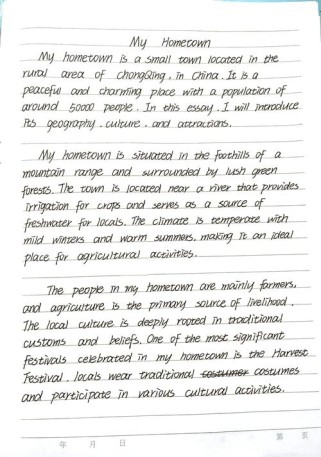 My Hometown
My hometown is a small town located in the
rural area of ChongQing, in China. It is a
peaceful and charming place with a population of
around 50000 people. In this essay, I will introduce
its geography, culture, and attractions.
My hometown is situated in the foothills of a
mountain range and surrounded by lush green
forests. The town is located near a river that provides
irrigation for crops and serves as a source of
freshwater for locals. The climate is temperate with
mild winters and warm summers, making it an ideal
place for agricultural activities.
The people in my hometown are mainly farmers,
and agriculture is the primary source of livelihood.
The local culture is deeply rooted in traditional
customs and beliefs. One of the most significant
festivals celebrated in my hometown is the Harvest
Festival. locals wear traditional costumer costumes
and participate in various cultural activities.
年 月 日 第 页